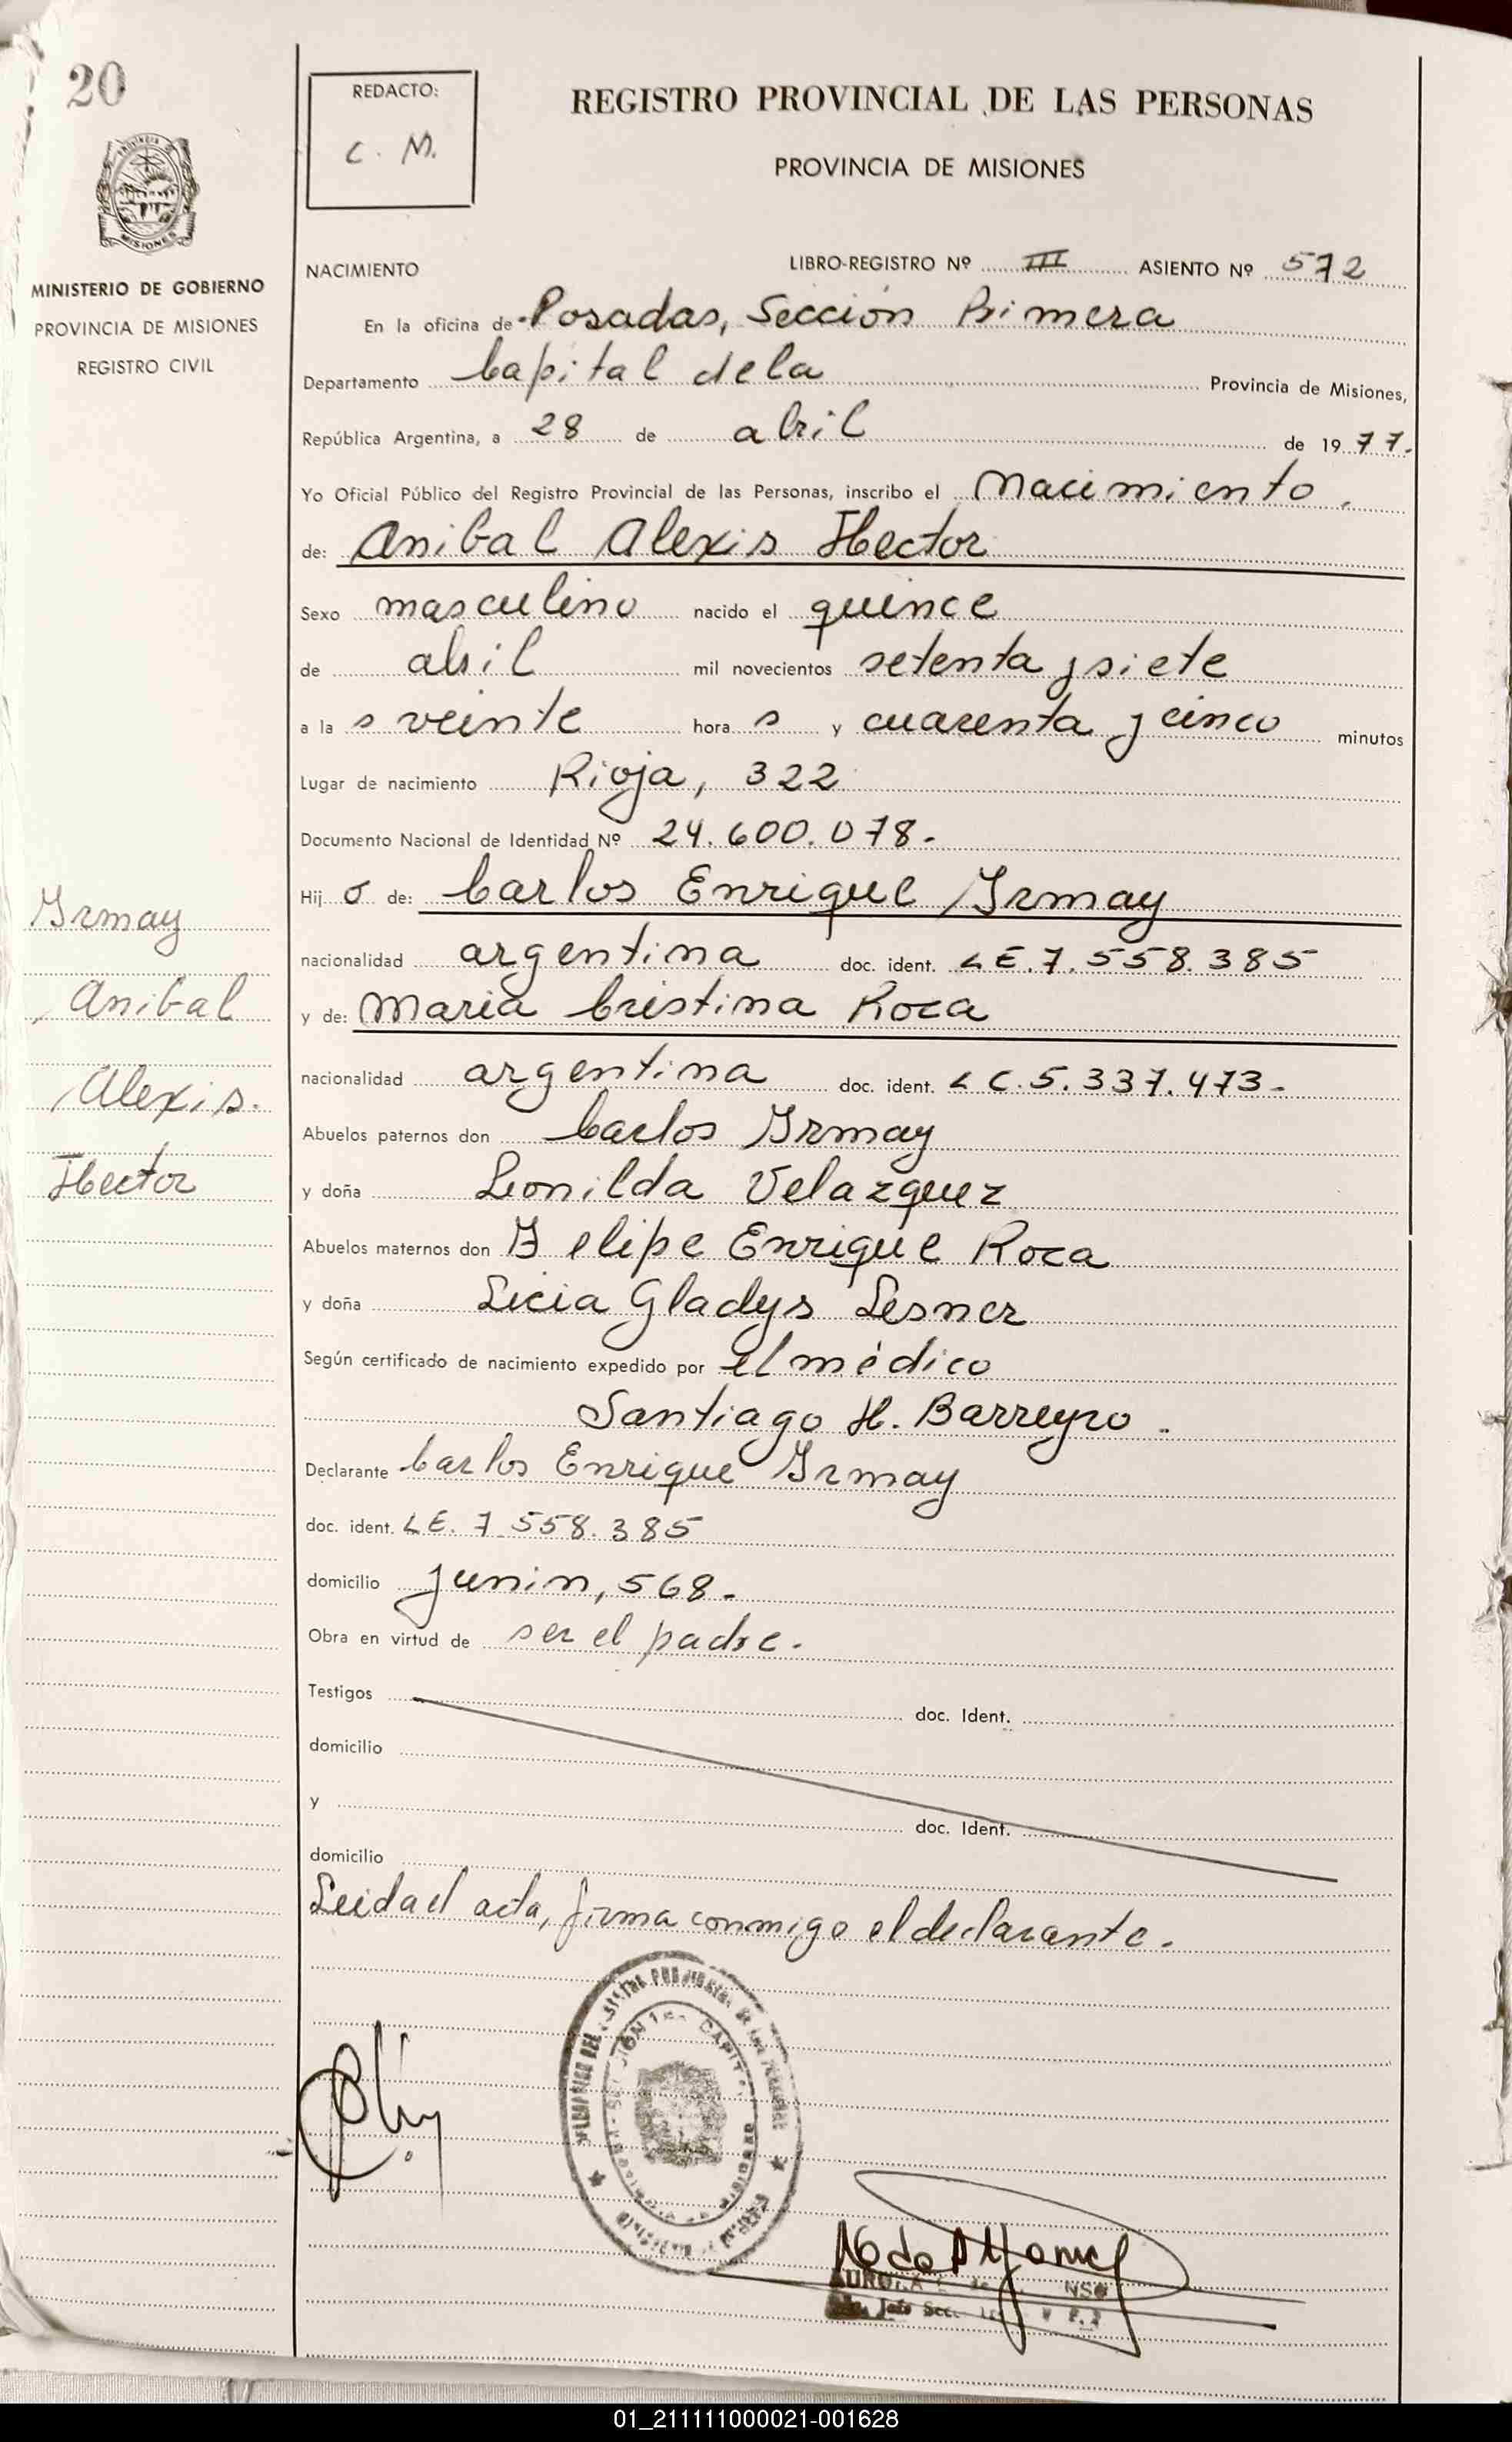 20
MISIONES
MINISTERIO DE GOBIERNO
PROVINCIA DE MISIONES
REGISTRO CIVIL
REDACTO:
C. M.
REGISTRO PROVINCIAL DE LAS PERSONAS
PROVINCIA DE MISIONES
NACIMIENTO LIBRO-REGISTRO Nº III ASIENTO Nº 572
En la oficina de Posadas, Sección Primera
Departamento Capital de la Provincia de Misiones,
República Argentina, a 28 de abril de 1977.
Yo Oficial Público del Registro Provincial de las Personas, inscribo el Nacimiento.
de: Anibal Alexis Hector
Sexo masculino nacido el quince
de abril mil novecientos setenta y siete
a las veinte horas y cuarenta y cinco minutos
Lugar de nacimiento Rioja, 322
Documento Nacional de Identidad Nº 24.600.078.-
Hijo de: Carlos Enrique Irmay
nacionalidad argentina doc. ident. LE.7.558.385
y de: Maria Cristina Roca
nacionalidad argentina doc. ident. LC.5.337.473-
Abuelos paternos don Carlos Irmay
y doña Leonilda Velazquez
Abuelos maternos don Felipe Enrique Roca
y doña Licia Gladys Lesner
Según certificado de nacimiento expedido por el médico
Santiago H. Barreyro.
Declarante Carlos Enrique Irmay
doc. ident. LE. 7.558.385
domicilio Junin, 568.-
Obra en virtud de ser el padre.
Testigos doc. Ident.
domicilio
y doc. Ident.
domicilio
Leida el acta, firma conmigo el declarante.
Irmay
Anibal
Alexis.
Hector
01_211111000021-001628